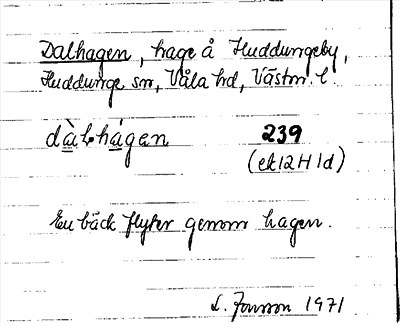 Dalhagen, hage å Huddungeby,
Huddunge sn, Våla hd, Västm. l.
dàl·hágen 239
(ek 12 H 1d)
En bäck flyter genom hagen.
L. Jonsson 1971